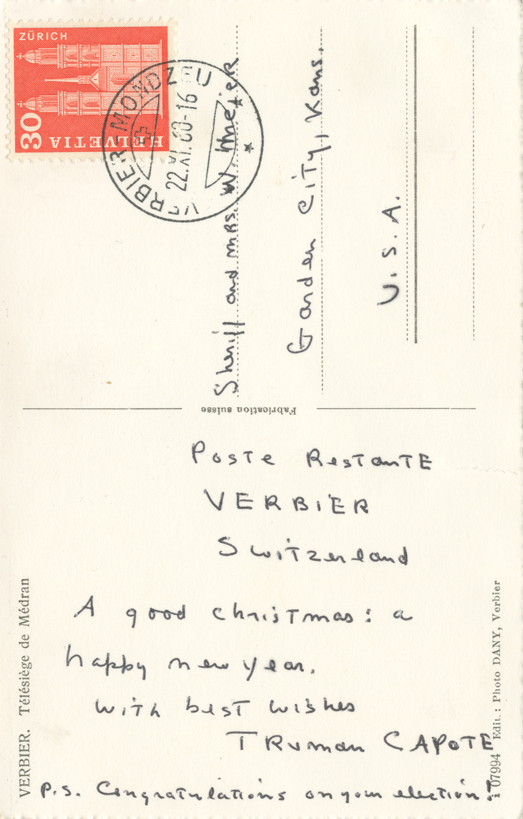 ZÜRICH
30
HELVETIA
VERBIER MONDZEU
22.XI.60-16
Sheriff and mrs. W. meier
Garden City, Kans.
U.S.A.
Fabrication suisse
Poste RestanTE
VERBiER
Switzerland
A good christmas: a
happy new year.
with best wishes
TRuman CAPOTE
P.S. Congratulations on your election!
VERBIER. Télésiège de Médran
07994 Edit.: Photo DANY, Verbier